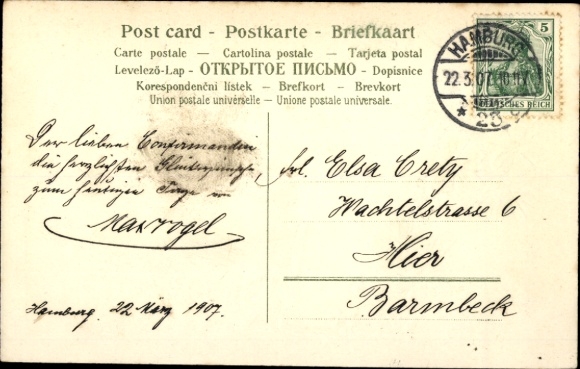 Post card - Postkarte - Briefkaart
Carte postale — Cartolina postale — Tarjeta postal
Levelező-Lap - ОТКРЫТОЕ ПИСЬМО - Dopisnice
Korespondenční lístek — Brefkort — Brevkort
Union postale universelle — Unione postale universale.
HAMBURG
22.3.07. 10-11V.
* 23
5
DEUTSCHES REICH
Der lieben Confirmandin
die herzlichsten Glückwünsche
zum heutigen Tage von
Max Vogel
Hamburg. 22 März 1907.
Frl. Elsa Crety
Wachtelstrasse 6
Hier
Barmbeck